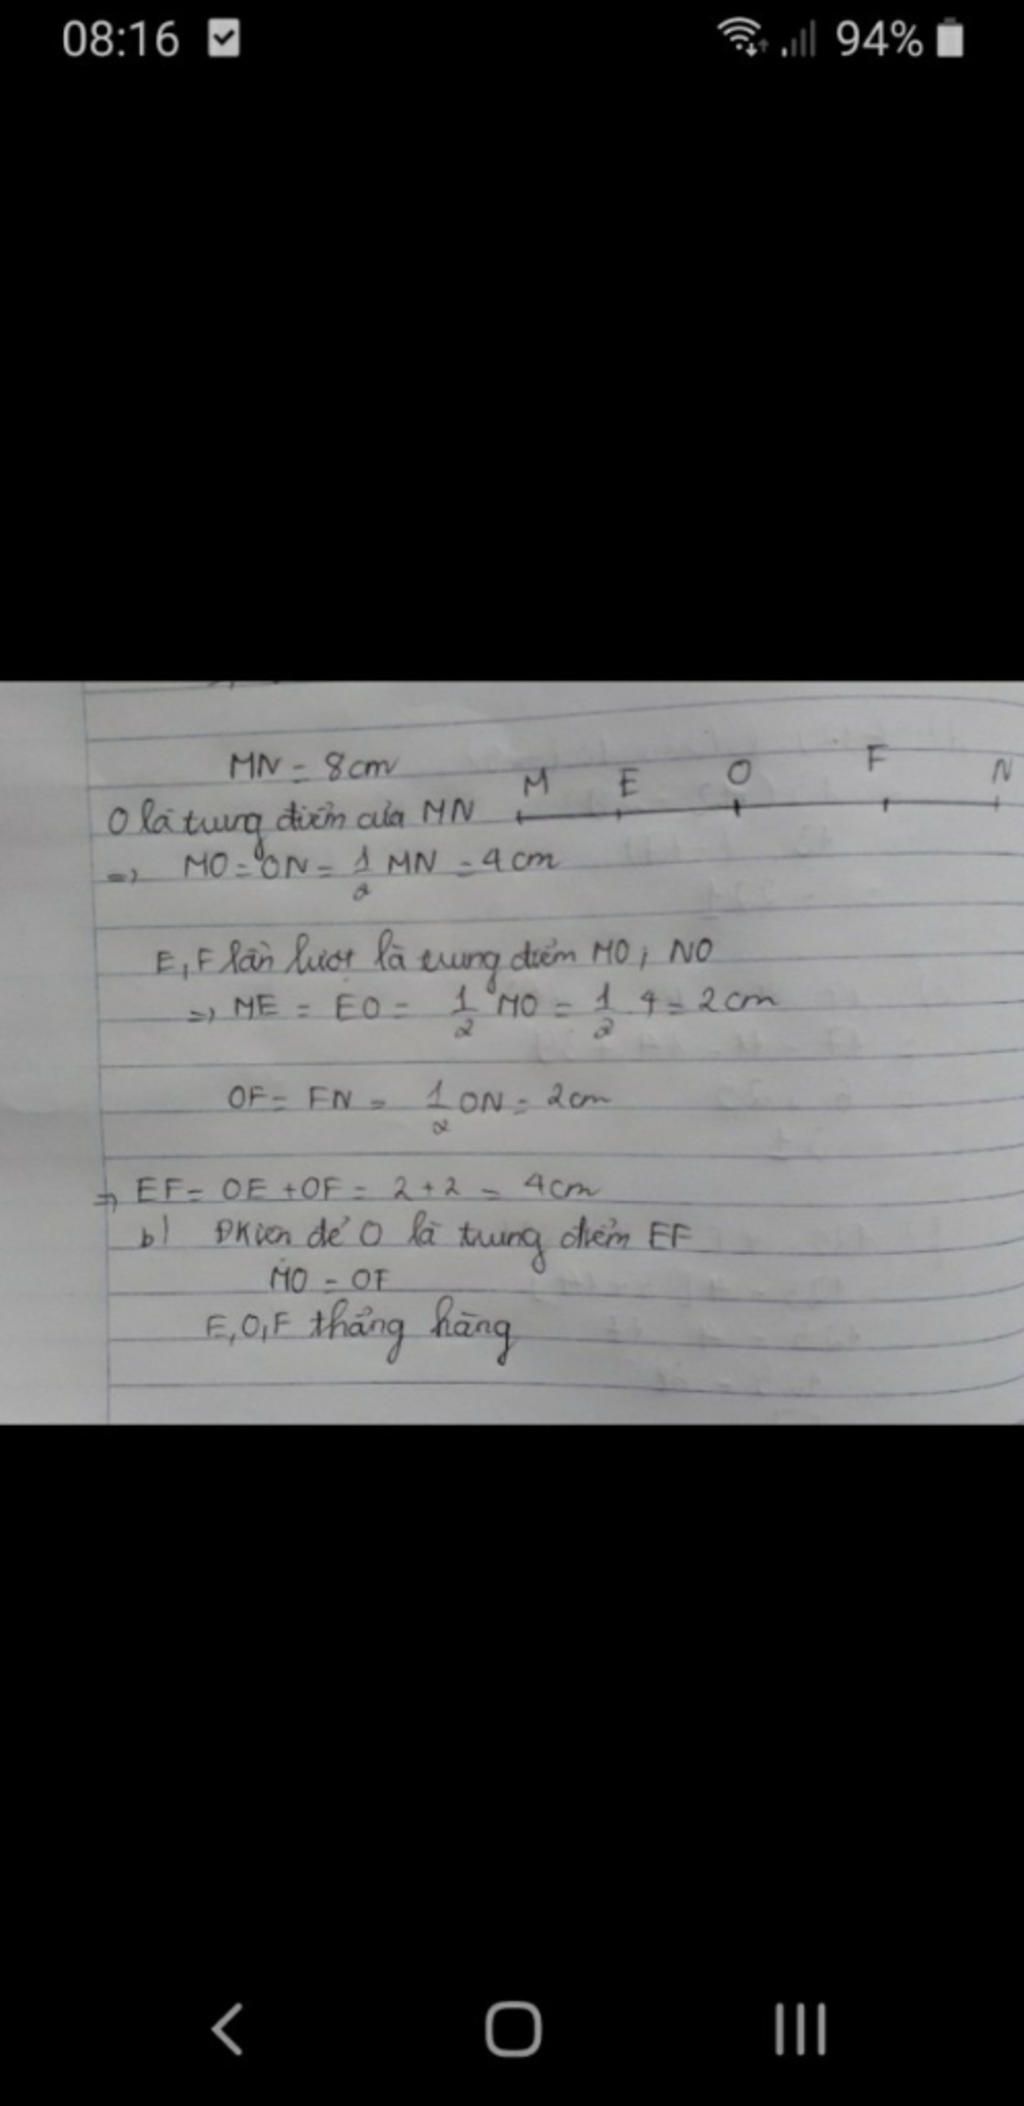 08:16
94%
MN = 8cm
M E O F N
O là trung điểm của MN
=> MO = ON = 1/2 MN = 4cm
E, F lần lượt là trung điểm MO, NO
=> ME = EO = 1/2 MO = 1/2 . 4 = 2cm
OF = FN = 1/2 ON = 2cm
=> EF = OE + OF = 2 + 2 = 4cm
b) ĐKiện để O là trung điểm EF
MO = OF
E, O, F thẳng hàng